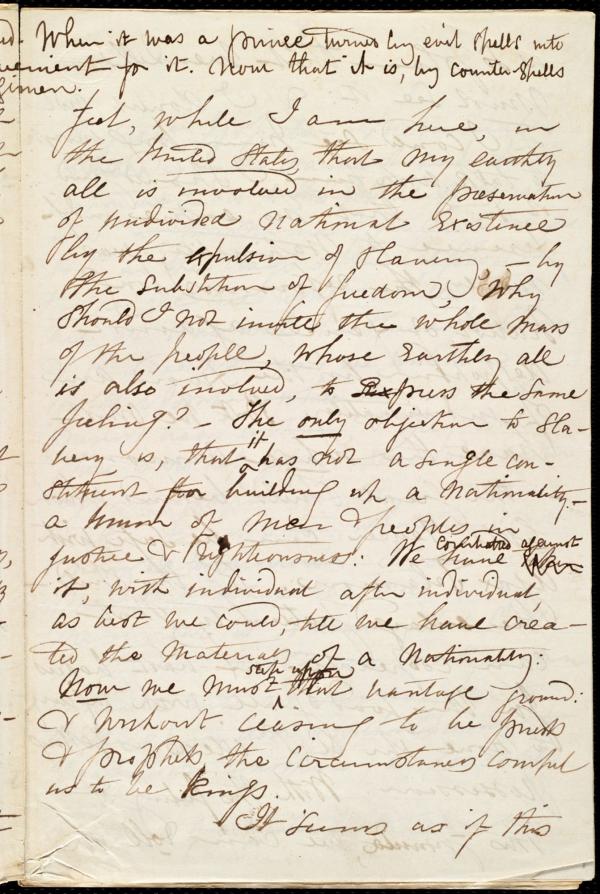 When it was a prince turned by evil spells into
for it. Now that it is, by counter-spells
feel, while I am here, in
the United States, that my earthly
all is involved in the preservation
of undivided national Existence
by the expulsion of Slavery – by
the Substitution of freedom, Why
Should I not invite the whole mass
of the people, whose Earthly all
is also involved, to Express the Same
feeling? – The only objection to Sla-
very is, that it has not a single con-
stituent for building up a Nationality –
a Union of men & peoples in
justice & righteousness. We have contended against
it, with individual after individual,
as best we could, till we have crea-
ted the Materials of a Nationality:
Now we must step upon that vantage ground:
& without ceasing to be priests
& prophets, the Circumstances compel
us to be kings.
It seems as if this